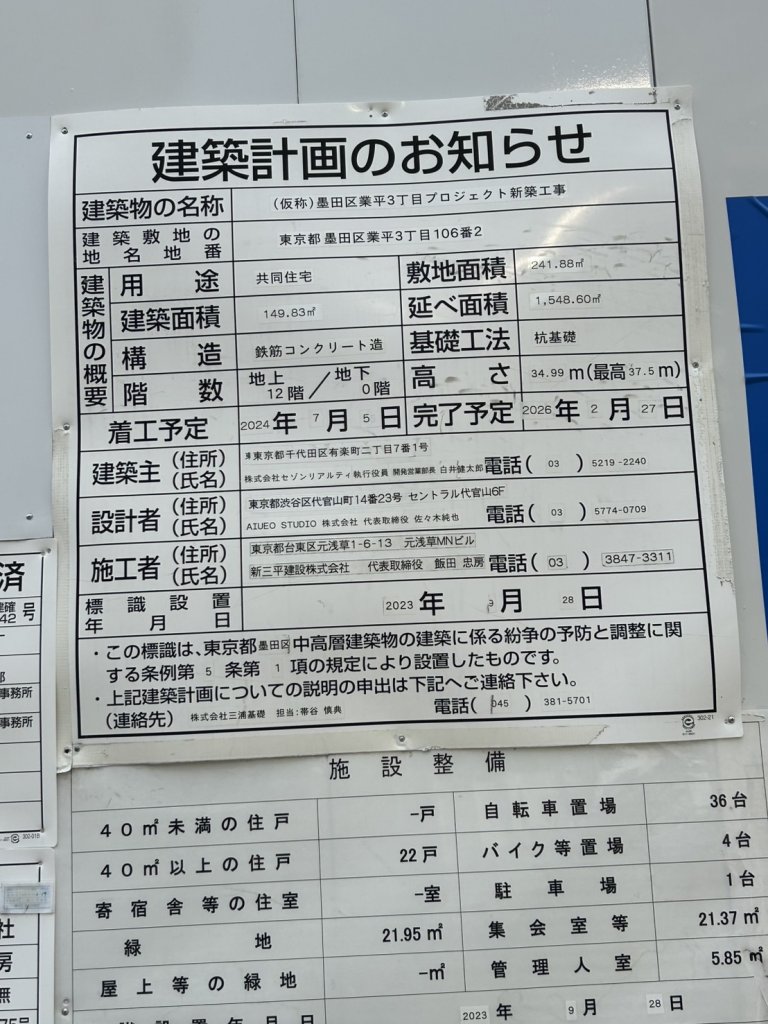 建築計画のお知らせ
建築物の名称 (仮称)墨田区業平3丁目プロジェクト新築工事
建築敷地の地名地番 東京都 墨田区業平3丁目106番2
建築物の概要
用途 共同住宅 敷地面積 241.88㎡
建築面積 149.83㎡ 延べ面積 1,548.60㎡
構造 鉄筋コンクリート造 基礎工法 杭基礎
階数 地上12階／地下0階 高さ 34.99 m(最高37.5 m)
着工予定 2024年 7月 5日 完了予定 2026年 2月 27日
建築主 (住所) 東京都千代田区有楽町二丁目7番1号
(氏名) 株式会社セゾンリアルティ執行役員 開発営業部長 白井健太郎 電話( 03 ) 5219-2240
設計者 (住所) 東京都渋谷区代官山町14番23号 セントラル代官山6F
(氏名) AIUEO STUDIO 株式会社 代表取締役 佐々木純也 電話( 03 ) 5774-0709
施工者 (住所) 東京都台東区元浅草1-6-13 元浅草MNビル
(氏名) 新三平建設株式会社 代表取締役 飯田 忠房 電話( 03 ) 3847-3311
標識設置年月日 2023年 9月 28日
・この標識は、東京都墨田区中高層建築物の建築に係る紛争の予防と調整に関
する条例第 5 条第 1 項の規定により設置したものです。
・上記建築計画についての説明の申出は下記へご連絡下さい。
(連絡先) 株式会社三浦基礎 担当:帯谷 慎典 電話( 045 ) 381-5701
302-21
施設整備
40㎡未満の住戸 -戸 自転車置場 36台
40㎡以上の住戸 22戸 バイク等置場 4台
寄宿舎等の住室 -室 駐車場 1台
緑地 21.95㎡ 集会室等 21.37㎡
屋上等の緑地 -㎡ 管理人室 5.85㎡
2023年 9月 28日
済
42 号
事務所
事務所
302-01B
社
房
無